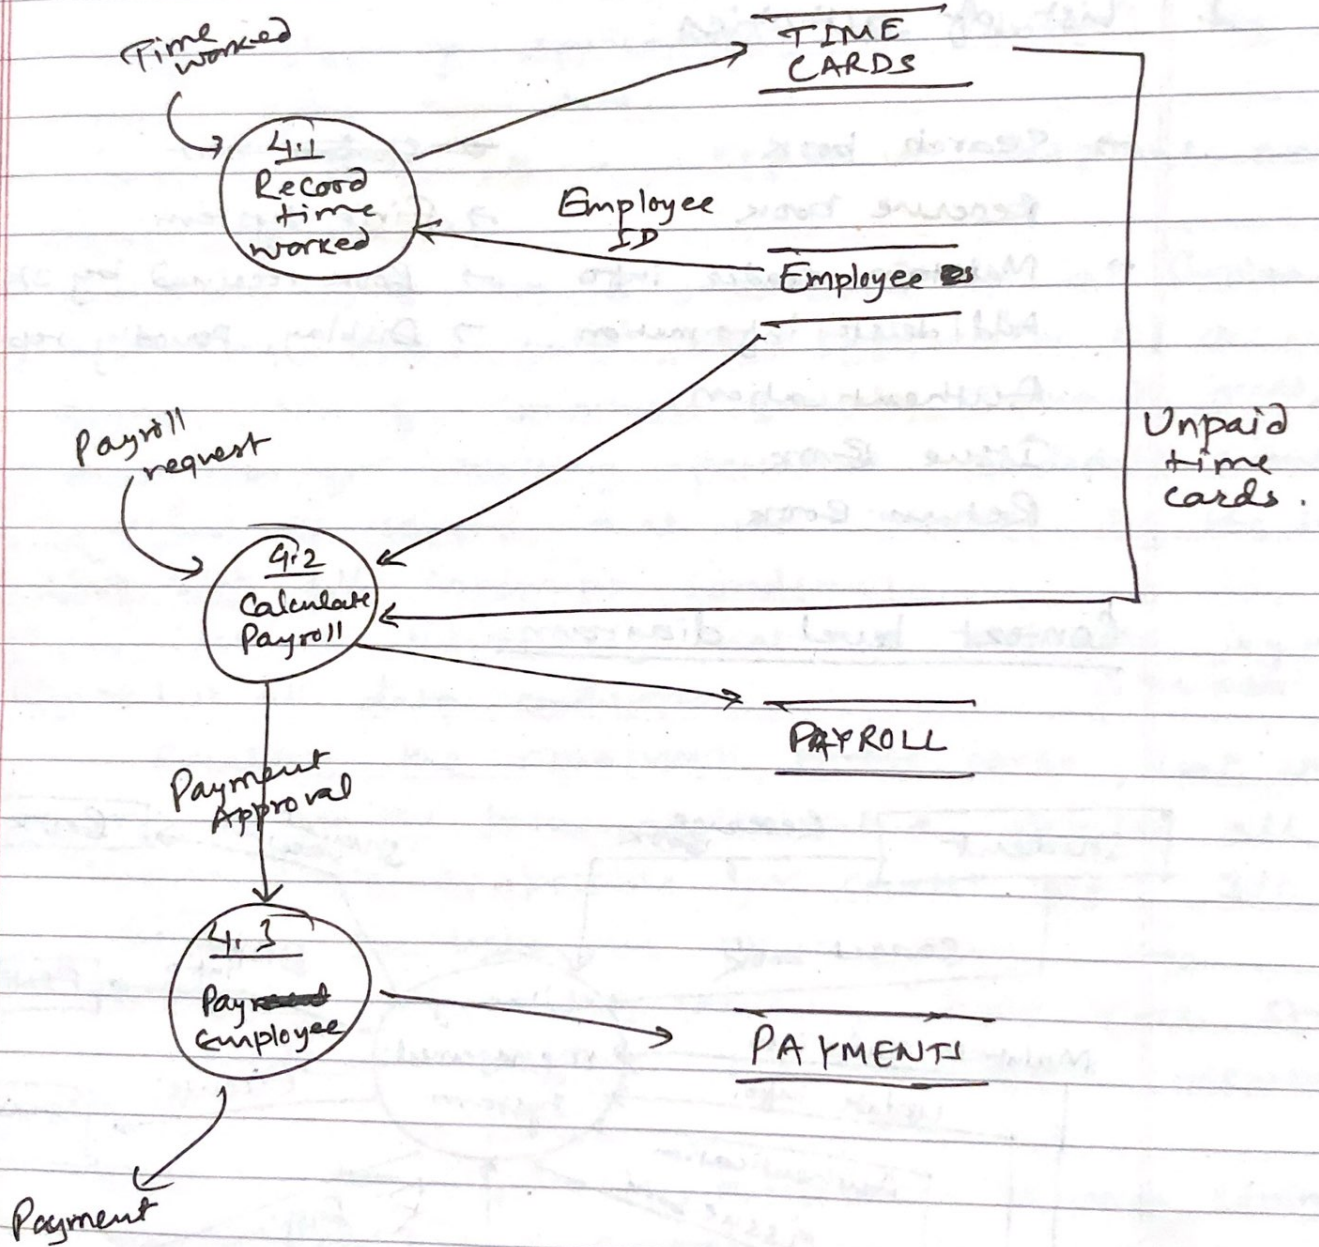 Time
worked
TIME
CARDS
4.1
Record
time
worked
Employee
ID
Employees
Payroll
request
Unpaid
time
cards.
4.2
Calculate
Payroll
PAYROLL
Payment
Approval
4.3
Pay
Employee
PAYMENTS
Payment